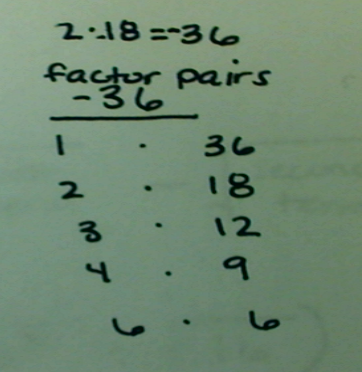 2·-18=-36
factor pairs
-36
1 · 36
2 · 18
3 · 12
4 · 9
6 · 6